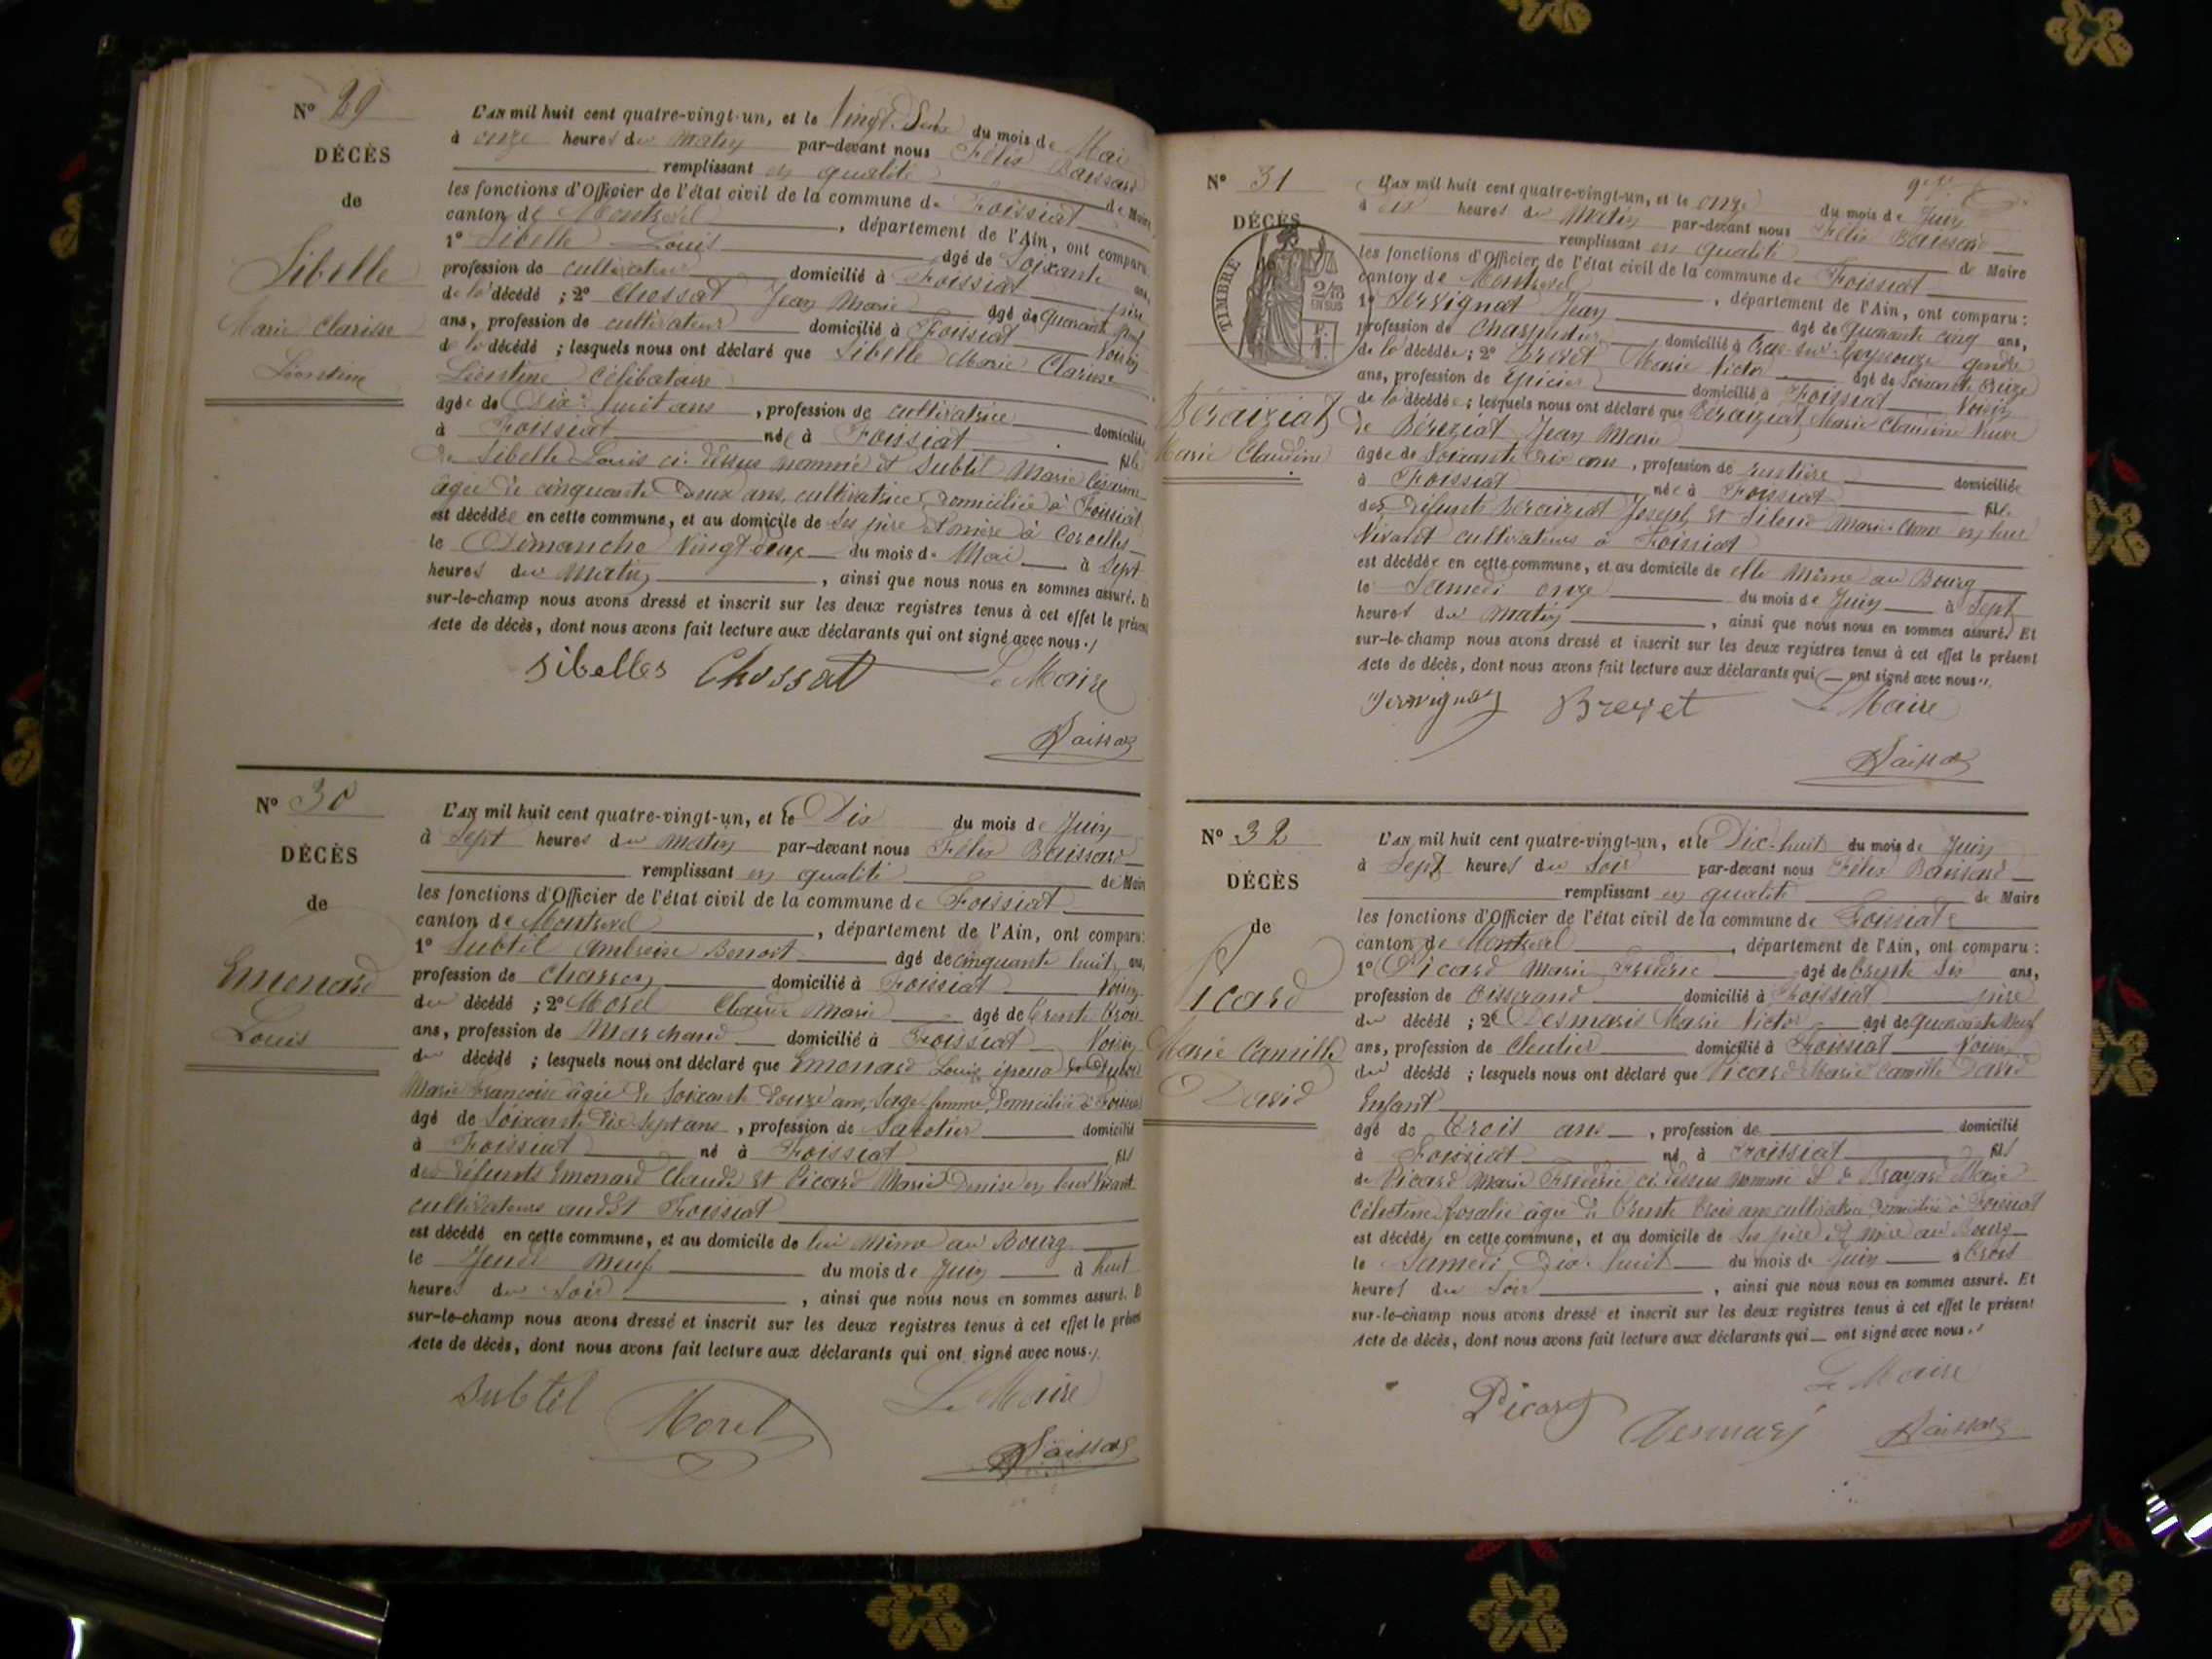 N° 29
DÉCÈS
de
Sibelle
Marie Clarisse
Léontine
L'AN mil huit cent quatre-vingt-un, et le Vingt Deux du mois de Mai
à onze heures du matin par-devant nous Félix Baissard
remplissant en qualité de Maire
les fonctions d'Officier de l'état civil de la commune de Foissiat
canton de Montrevel, département de l'Ain, ont comparu
1° Sibelle Louis âgé de Soixante ans,
profession de cultivateur domicilié à Foissiat père
de la décédé ; 2° Chossat Jean Marie âgé de quarante neuf
ans, profession de cultivateur domicilié à Foissiat Voisin
de la décédé ; lesquels nous ont déclaré que Sibelle Marie Clarisse
Léontine Célibataire
âgée de Dix-huit ans, profession de cultivatrice domiciliée
à Foissiat née à Foissiat fille
de Sibelle Louis ci-dessus nommé et Subtil Marie Césarine
âgée de cinquante Deux ans, cultivatrice, Domiciliée à Foissiat
est décédée en cette commune, et au domicile de ses père et mère à Corcelles
le Dimanche Vingt-deux du mois de Mai à Sept
heures du Matin, ainsi que nous nous en sommes assuré. Et
sur-le-champ nous avons dressé et inscrit sur les deux registres tenus à cet effet le présent
Acte de décès, dont nous avons fait lecture aux déclarants qui ont signé avec nous./
Sibelles Chossat Le Maire
Baissard
N° 30
DÉCÈS
de
Emonard
Louis
L'AN mil huit cent quatre-vingt-un, et le Dix du mois de Juin
à Sept heures du matin par-devant nous Félix Baissard
remplissant en qualité de Maire
les fonctions d'Officier de l'état civil de la commune de Foissiat
canton de Montrevel, département de l'Ain, ont comparu :
1° Subtil Ambroise Benoit âgé de cinquante huit ans,
profession de Charron domicilié à Foissiat Voisin
du décédé ; 2° Morel Claude Marie âgé de trente trois
ans, profession de Marchand domicilié à Foissiat Voisin
du décédé ; lesquels nous ont déclaré que Emonard Louis époux de
Marie Françoise âgée de Soixante Douze ans, Sage-femme, Domiciliée à Foissiat
âgé de Soixante Dix Sept ans, profession de Sabotier domicilié
à Foissiat né à Foissiat fils
des défunts Emonard Claude et Picard Marie Denise en leur Vivant
cultivateurs audit Foissiat
est décédé en cette commune, et au domicile de lui même au Bourg
le Jeudi neuf du mois de Juin à huit
heures du Soir, ainsi que nous nous en sommes assuré. Et
sur-le-champ nous avons dressé et inscrit sur les deux registres tenus à cet effet le présent
Acte de décès, dont nous avons fait lecture aux déclarants qui ont signé avec nous./.
Subtil Morel Le Maire
Baissard
N° 31
DÉCÈS
TIMBRE
2/10
EN SUS
Béraiziat
Marie Claudine
L'AN mil huit cent quatre-vingt-un, et le onze du mois de Juin
à dix heures du Matin par-devant nous Félix Baissard
remplissant en qualité de Maire
les fonctions d'Officier de l'état civil de la commune de Foissiat
canton de Montrevel, département de l'Ain, ont comparu :
1° Servignat Jean âgé de quarante cinq ans,
profession de Charpentier domicilié à Cras-sur-Reyssouze gendre
de la décédée ; 2° Brevet Marie Victor âgé de Soixante treize
ans, profession de Épicier domicilié à Foissiat Voisin
de la décédée ; lesquels nous ont déclaré que Béraiziat Marie Claudine Veuve
de Béréziat Jean Marie
âgée de Soixante dix ans, profession de rentière domiciliée
à Foissiat née à Foissiat fille
des Défunts Béraiziat Joseph et Marie Anne en leur
Vivant cultivateurs à Foissiat
est décédée en cette commune, et au domicile de elle même au Bourg
le Samedi onze du mois de Juin à Sept
heures du matin, ainsi que nous nous en sommes assuré. Et
sur-le-champ nous avons dressé et inscrit sur les deux registres tenus à cet effet le présent
Acte de décès, dont nous avons fait lecture aux déclarants qui ont signé avec nous./.
Servignat Brevet Le Maire
Baissard
N° 32
DÉCÈS
de
Picard
Marie Camille
David
L'AN mil huit cent quatre-vingt-un, et le Dix-huit du mois de Juin
à Sept heures du Soir par-devant nous Félix Baissard
remplissant en qualité de Maire
les fonctions d'Officier de l'état civil de la commune de Foissiat
canton de Montrevel, département de l'Ain, ont comparu :
1° Picard Marie Frédéric âgé de trente Six ans,
profession de tisserand domicilié à Foissiat père
du décédé ; 2° Desmaris Marie Victor âgé de quarante neuf
ans, profession de Cloutier domicilié à Foissiat Voisin
du décédé ; lesquels nous ont déclaré que Picard Marie Camille David
Enfant
âgé de trois ans, profession de domicilié
à Foissiat né à Foissiat fils
de Picard Marie Frédéric ci-dessus nommé et de Brayard Marie
Célestine Rosalie âgée de trente trois ans cultivatrice Domiciliée à Foissiat
est décédé en cette commune, et au domicile de ses père et mère au Bourg
le Samedi Dix-huit du mois de Juin à trois
heures du Soir, ainsi que nous nous en sommes assuré. Et
sur-le-champ nous avons dressé et inscrit sur les deux registres tenus à cet effet le présent
Acte de décès, dont nous avons fait lecture aux déclarants qui ont signé avec nous./
Picard Desmaris Le Maire
Baissard